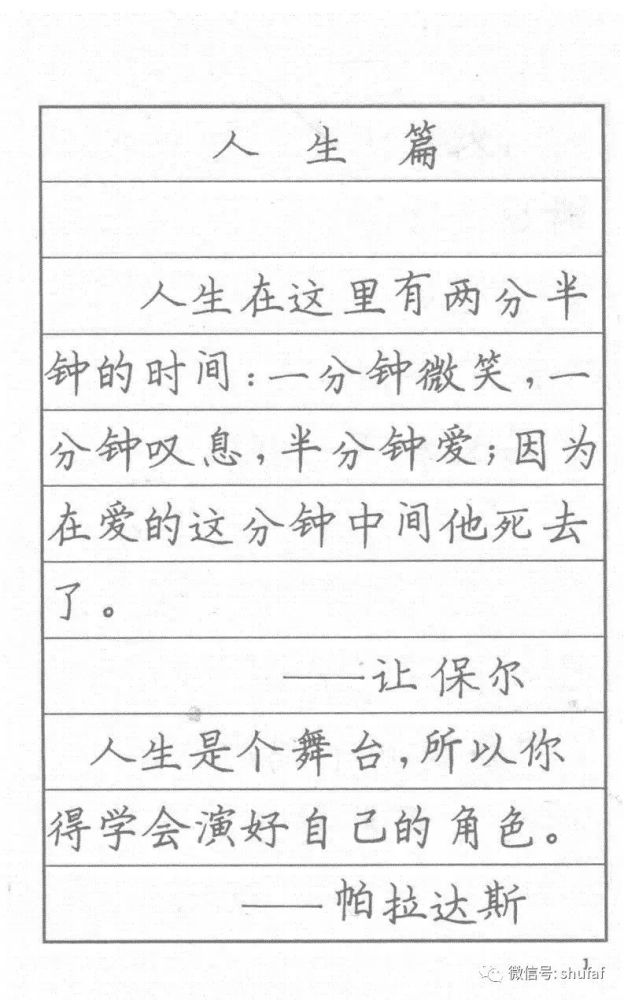 人生篇
人生在这里有两分半
钟的时间:一分钟微笑,一
分钟叹息,半分钟爱;因为
在爱的这分钟中间他死去
了。
——让保尔
人生是个舞台,所以你
得学会演好自己的角色。
——帕拉达斯
1
微信号:shufaf